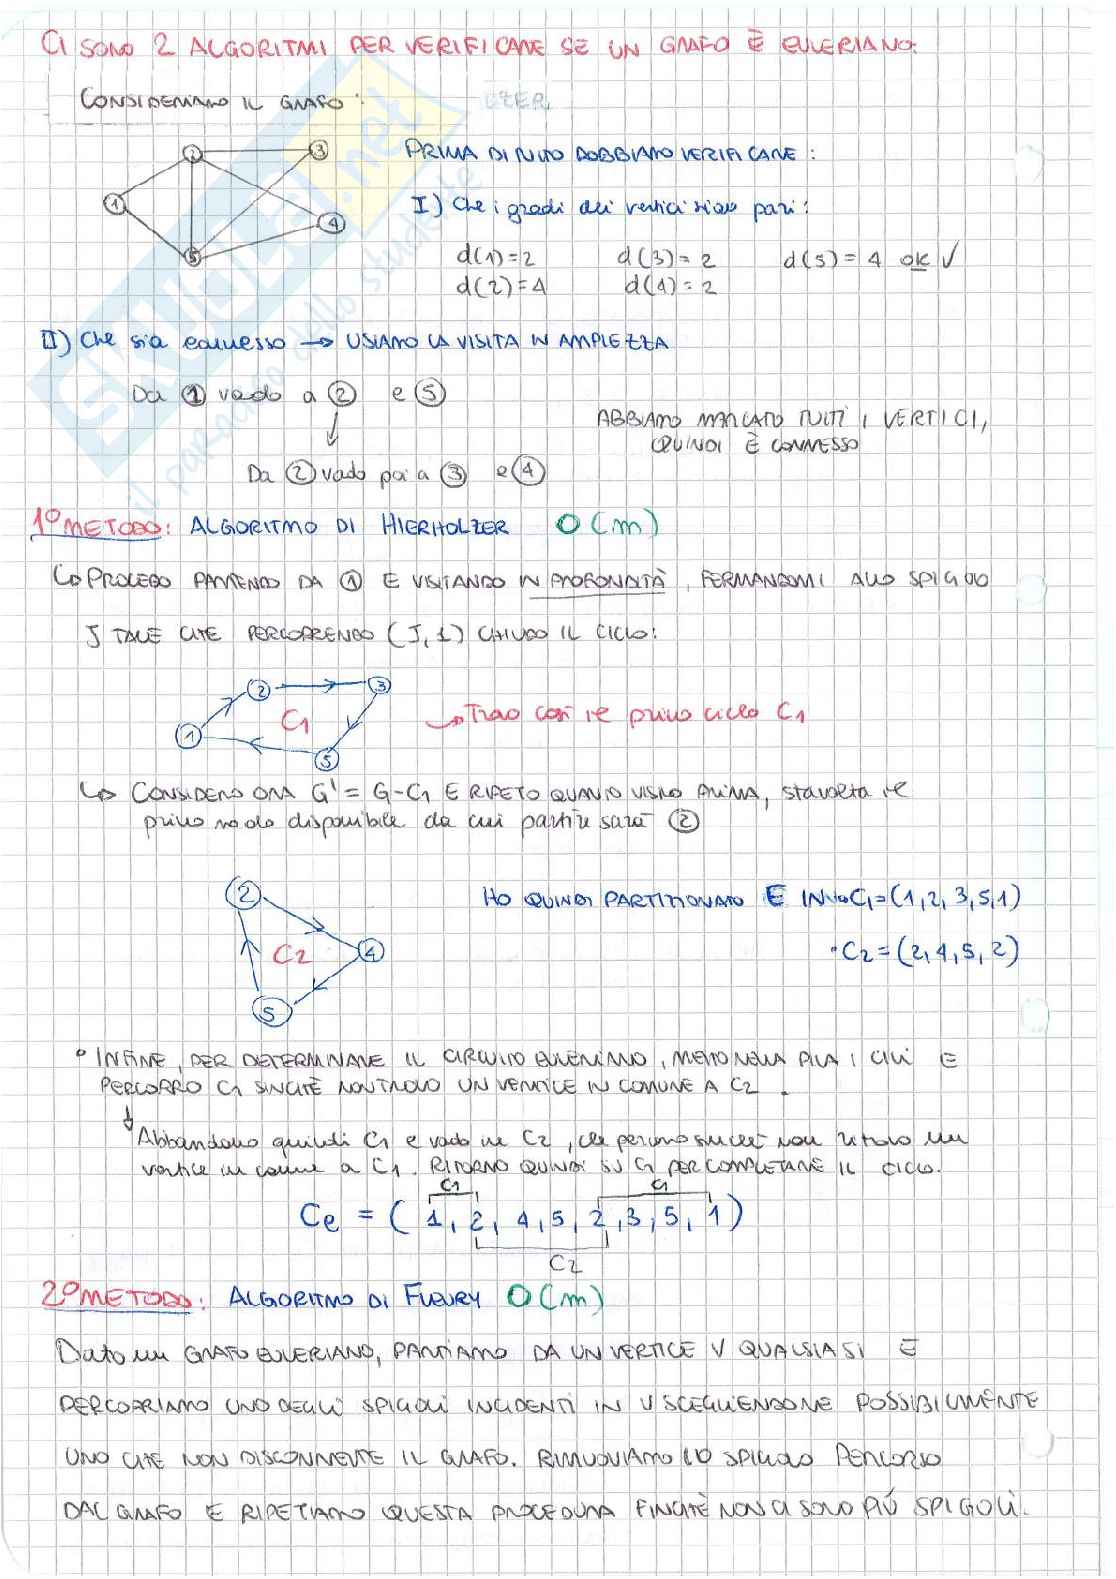 CI SONO 2 ALGORITMI PER VERIFICARE SE UN GRAFO È EULERIANO.
CONSIDERIAMO IL GRAFO:
PRIMA DI TUTTO DOBBIAMO VERIFICARE:
1 2 3 4 5
I) Che i gradi dei vertici siano pari:
d(1)=2 d(3)=2 d(5)=4 ok ✓
d(2)=4 d(1)=2
II) Che sia connesso → USIAMO LA VISITA IN AMPIEZZA
Da 1 vado a 2 e 5
ABBIAMO MARCATO TUTTI I VERTICI,
QUINDI È CONNESSO
Da 2 vado poi a 3 e 4
1° METODO: ALGORITMO DI HIERHOLZER O(m)
↳ PROCEDO PARTENDO DA 1 E VISITANDO IN PROFONDITÀ, FERMANDOMI ALLO SPIGOLO
J TALE CHE PERCORRENDO (J,1) CHIUDO IL CICLO:
1 2 3 5 C1
→ Trovo così il primo ciclo C1
↳ CONSIDERO ORA G' = G-C1 E RIPETO QUANTO VISTO PRIMA, stavolta il
primo nodo disponibile da cui partire sarà 2
2 4 5 C2
HO QUINDI PARTIZIONATO E IN C1=(1,2,3,5,1)
• C2=(2,4,5,2)
• INFINE, PER DETERMINARE IL CIRCUITO EULERIANO, METTO NELLA PILA I CICLI E
PERCORRO C1 SINCHÈ NON TROVO UN VERTICE IN COMUNE A C2.
↓ Abbandono quindi C1 e vado in C2, che percorro sinchè non ritrovo un
vertice in comune a C1. RITORNO QUINDI SU C1 PER COMPLETARE IL CICLO.
C1 C1
Ce = (1, 2, 4, 5, 2, 3, 5, 1)
C2
2° METODO: ALGORITMO DI FLEURY O(m)
Dato un GRAFO EULERIANO, PARTIAMO DA UN VERTICE V QUALSIASI E
PERCORRIAMO UNO DEGLI SPIGOLI INCIDENTI IN V SCEGLIENDONE POSSIBILMENTE
UNO CHE NON DISCONNETTE IL GRAFO. RIMUOVIAMO LO SPIGOLO PERCORSO
DAL GRAFO E RIPETIAMO QUESTA PROCEDURA FINCHÈ NON CI SONO PIÙ SPIGOLI.
SKUOLA.net
il paradiso dello studente